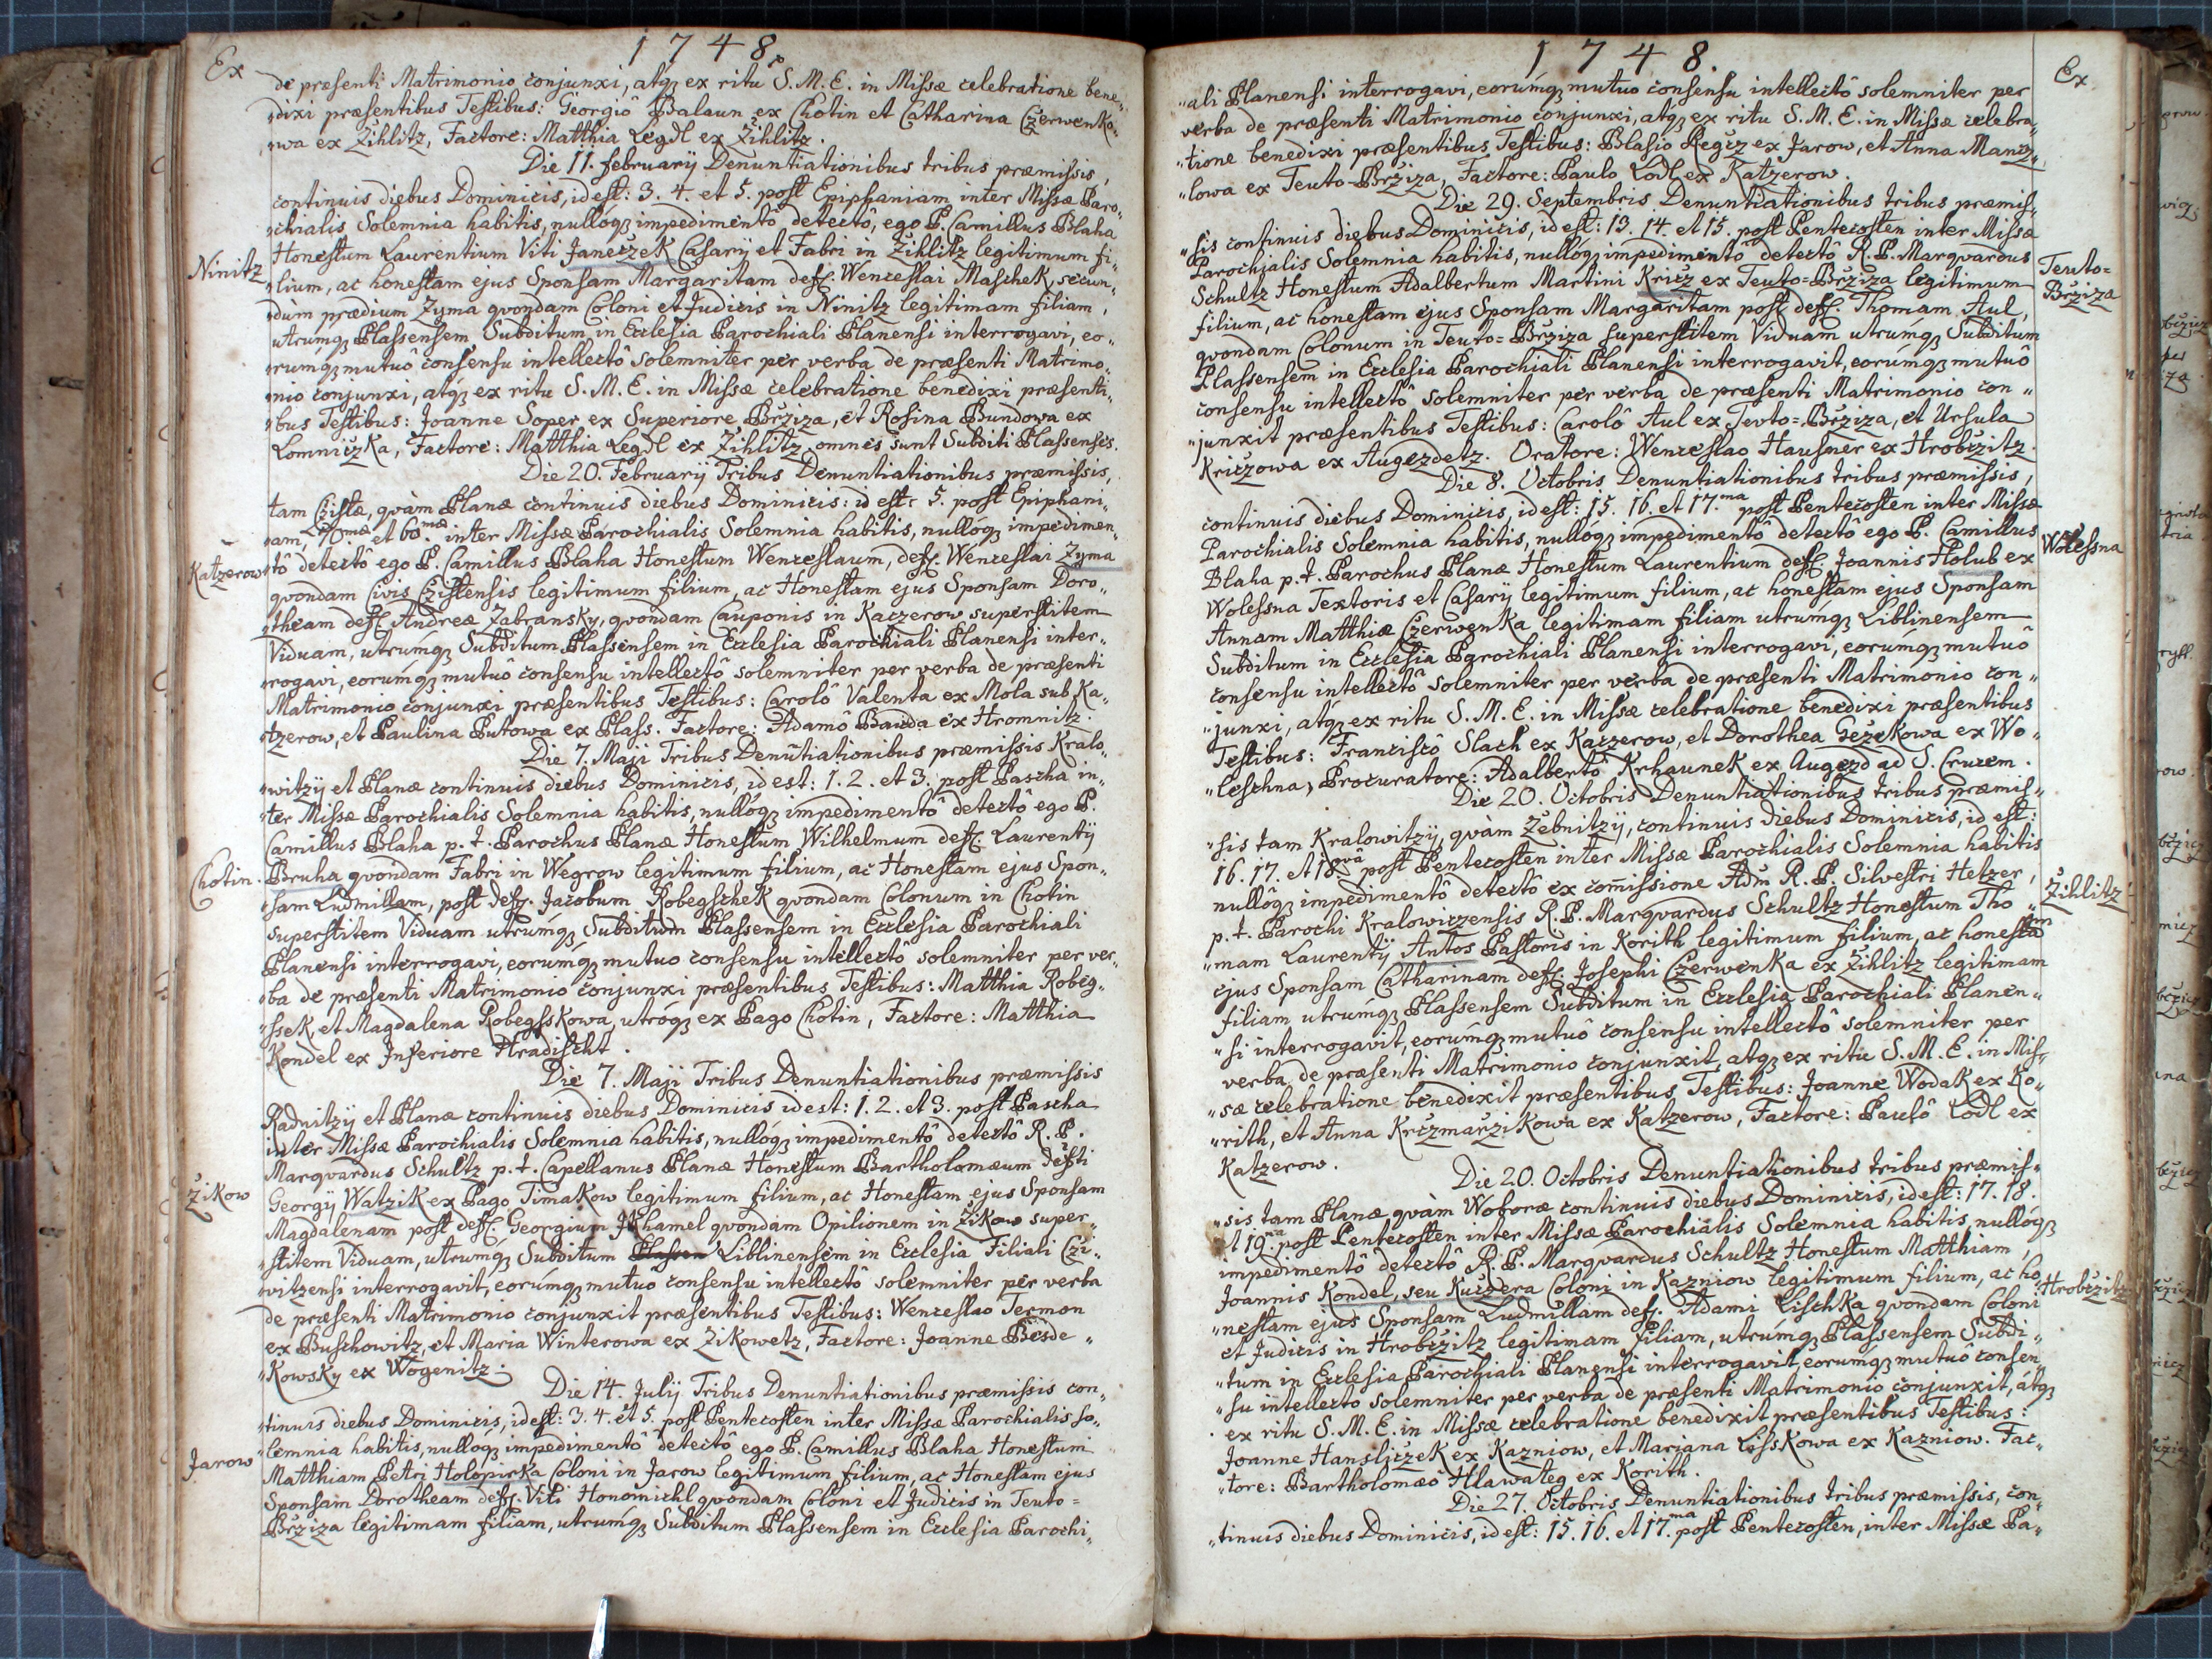 1748
Ex
de præsenti Matrimonio conjunxi, atq; ex ritu S. M. E. in Missæ celebratione bene„
„dixi præsentibus Testibus: Georgiô Balaun ex Chotin et Catharina Czerwenko„
„wa ex Žihlitz, Factore: Matthia Legdl ex Žihlitz.
Die 11. februarij Denuntiationibus tribus præmissis,
continuis diebus Dominicis, id est: 3. 4. et 5. post Epiphaniam inter Missæ Paro„
„chialis Solemnia habitis, nullóq; impedimentô detectô, ego P. Camillus Blaha
Ninitz
Honestum Laurentium Viti Janeczek Casarij et Fabri in Žihlitz legitimum fi„
„lium, ac honestam ejus Sponsam Margaritam deff: Wenceslai Maschek, secun„
„dùm prædium Zyma qvondam Coloni et Judicis in Ninitz legitimam filiam,
utrúmq; Plassensem Subditum in Ecclesia Parochiali Planensi interrogavi, eo„
„rúmq; mutuô consensu intellectô solemniter per verba de præsenti Matrimo„
„nio conjunxi, atq; ex ritu S. M. E. in Missæ celebratione benedixi præsenti„
„bus Testibus: Joanne Soper ex Superiore Bržiza, et Rosina Bundowa ex
Lomniczka, Factore: Matthia Legdl ex Žihlitz, omnes sunt Subditi Plassenses.
Die 20. Februarij Tribus Denuntiationibus præmissis,
tam Czistæ, qvàm Planæ continuis diebus Dominicis: id est: 5. post Epiphani„
„am, 70.mæ et 60.mæ inter Missæ Parochialis Solemnia habitis, nullóq; impedimen„
Katzerow
„tô detectô ego P. Camillus Blaha Honestum Wenceslaum, deff: Wenceslai Zyma
qvondam Civis Czistensis legitimum filium, ac Honestam ejus Sponsam Doro„
„theam deff: Andreæ Zabransky, qvondam Cauponis in Kaczerow superstitem
Viduam, utrúmq; Subditum Plassensem in Ecclesia Parochiali Planensi inter„
„rogavi, eorúmq; mutuô consensu intellectô solemniter per verba de præsenti
Matrimonio conjunxi præsentibus Testibus: Carolô Valenta ex Mola sub Ka„
„tzerow, et Paulina Putowa ex Plass. Factore: Adamô Bauda ex Hromnitz.
Die 7. Maji Tribus Denũtiationibus præmissis Kralo„
„witzij et Planæ continuis diebus Dominicis, id est: 1. 2. et 3. post Pascha in„
„ter Missæ Parochialis Solemnia habitis, nullóq; impedimentô detectô ego P.
Camillus Blaha p. t. Parochus Planæ Honestum Wilhelmum deff: Laurentij
Chotin.
Bruha qvondam Fabri in Wegrow legitimum filium, ac Honestam ejus Spon„
„sam Ludmillam, post deff: Jacobum Robegschek qvondam Colonum in Chotin
superstitem Viduam utrúmq; Subditum Plassensem in Ecclesia Parochiali
Planensi interrogavi, eorúmq; mutuo consensu intellectô solemniter per ver„
„ba de præsenti Matrimonio conjunxi præsentibus Testibus: Matthia Robeg„
„ssek, et Magdalena Robegsskowa, utróq; ex Pago Chotin, Factore: Matthia
Kondel ex Inferiore Hradischt.
Die 7. Maji Tribus Denuntiationibus præmissis
Radnitzij et Planæ continuis diebus Dominicis id est: 1. 2. et 3. post Pascha
inter Missæ Parochialis Solemnia habitis, nullóq; impedimentô detectô R. P.
Marqvardus Schultz p. t. Capellanus Planæ Honestum Bartholomæum deffti
Žikow
Georgij Watzik ex Pago Timakow legitimum filium, ac Honestam ejus Sponsam
Magdalenam post deff: Georgium Khamel qvondam Opilionem in Žikow super„
„stitem Viduam, utrumq; Subditum Plassen Liblinensem in Ecclesia Filiali Czi„
„witzensi interrogavit, eorumq; mutuô consensu intellectô solemniter per verba
de præsenti Matrimonio conjunxit præsentibus Testibus: Wenceslao Termon
ex Buschowitz, et Maria Winterowa ex Zikowetz, Factore: Joanne Besde„
„kowsky ex Wogenitz.
Die 14. Julij Tribus Denuntiationibus præmissis con„
„tinuis diebus Dominicis, id est: 3. 4. et 5. post Pentecosten inter Missæ Parochialis so„
Jarow
„lemnia habitis, nullóq; impedimentô detectô ego P. Camillus Blaha Honestum
Matthiam Petri Holopirka Coloni in Jarow legitimum filium, ac Honestam ejus
Sponsam Dorotheam deff: Viti Honomichl qvondam Coloni et Judicis in Teuto=
Bržiza legitimam filiam, utrúmq; Subditum Plassensem in Ecclesia Parochi„
1748.
Ex
„ali Planensi interrogavi, eorúmq; mutuo consensu intellectô solemniter per
verba de præsenti Matrimonio conjunxi, atq; ex ritu S. M. E. in Missæ celebra„
„tione benedixi præsentibus Testibus: Blasio Regcz ex Jarow, et Anna Mancz„
„lowa ex Teuto-Bržiza, Factore: Paulo Lodl ex Katzerow.
Die 29. Septembris Denuntiationibus tribus præmis„
„sis continuis diebus Dominicis, id est: 13. 14. et 15. post Pentecosten inter Missæ
Parochialis Solemnia habitis, nullóq; impedimentô detectô R. P. Marqvardus
Teuto=
Bržiza
Schultz Honestum Adalbertum Martini Kricz ex Teuto=Bržiza legitimum
filium, ac honestam ejus Sponsam Margaritam post deff: Thomam Aul,
qvondam Colonum in Teuto=Bržiza superstitem Viduam utrúmq; Subditum
Plassensem in Ecclesia Parochiali Planensi interrogavit, eorúmq; mutuô
consensu intellectô solemniter per verba de præsenti Matrimonio con„
„junxit præsentibus Testibus: Carolô Aul ex Tevto=Bržiza, et Ursula
Kriczowa ex Augezdetz. Oratore: Wenceslao Hausner ex Hrobczitz.
Die 8. Octobris Denuntiationibus tribus præmissis,
continuis diebus Dominicis, id est: 15. 16. et 17.ma post Pentecosten inter Missæ
Parochialis Solemnia habitis, nullóq; impedimentô detectô ego P. Camillus
Wolessna
Blaha p. t. Parochus Planæ Honestum Laurentium deff: Joannis Holub ex
Wolessna Textoris et Casarij legitimum filium, ac honestam ejus Sponsam
Annam Matthiæ Czerwenka legitimam filiam utrúmq; Liblinensem
Subditum in Ecclesia Parochiali Planensi interrogavi, eorúmq; mutuô
consensu intellectô solemniter per verba de præsenti Matrimonio con„
„junxi, atq; ex ritu S. M. E. in Missæ celebratione benedixi præsentibus
Testibus: Franciscô Slach ex Kaczerow, et Dorothea Gezekowa ex Wo„
„leschna, Procuratore: Adalbertô Krhaunek ex Augezd ad S. Crucem.
Die 20. Octobris Denuntiationibus tribus præmis„
„sis tam Kralowitzij, qvàm Žebnitzij, continuis diebus Dominicis, id est:
16. 17. et 18.va post Pentecosten inter Missæ Parochialis Solemnia habitis
nullôq; impedimentô detectô ex com̃issione Adm̃ R. P. Silvestri Hetzer,
Žihlitz
p. t. Parochi Kralowiczensis R. P. Marqvardus Schultz Honestum Tho„
„mam Laurentij Antos Pastoris in Korith legitimum filium, ac honestam
ejus Sponsam Catharinam deff: Josephi Czerwenka ex Žihlitz legitimam
filiam utrúmq; Plassensem Subditum in Ecclesia Parochiali Planen„
„si interrogavit, eorúmq; mutuô consensu intellectô solemniter per
verba de præsenti Matrimonio conjunxit, atq; ex ritu S. M. E. in Mis„
„sæ celebratione benedixit præsentibus Testibus: Joanne Wodak ex Ko„
„rith, et Anna Krczmarzikowa ex Katzerow, Factore: Paulô Lodl ex
Katzerow.
Die 20. Octobris Denuntiationibus tribus præmis„
„sis tam Planæ qvàm Woboræ continuis diebus Dominicis, id est: 17. 18.
et 19.na post Pentecosten inter Missæ Parochialis Solemnia habitis, nullóq;
impedimentô detectô R. P. Marqvardus Schultz Honestum Matthiam,
Hrobczitz
Joannis Kondel, seu Kuczera Coloni in Kazniow legitimum filium, ac ho„
„nestam ejus Sponsam Ludmillam deff: Adami Lischka qvondam Coloni
et Judicis in Hrobczitz legitimam filiam, utrúmq; Plassensem Subdi„
„tum in Ecclesia Parochiali Planensi interrogavit, eorumq; mutuô consen„
„su intellecto solemniter per verba de præsenti Matrimonio conjunxit, átq;
ex ritu S. M. E. in Missæ celebratione benedixit præsentibus Testibus:
Joanne Hansliczek ex Kazniow, et Mariana Lisskowa ex Kazniow. Fac„
„tore: Bartholomæô Hlawateg ex Korith.
Die 27. Octobris Denuntiationibus tribus præmissis, con„
„tinuis diebus Dominicis, id est: 15. 16. et 17.ma post Pentecosten, inter Missæ Pa„